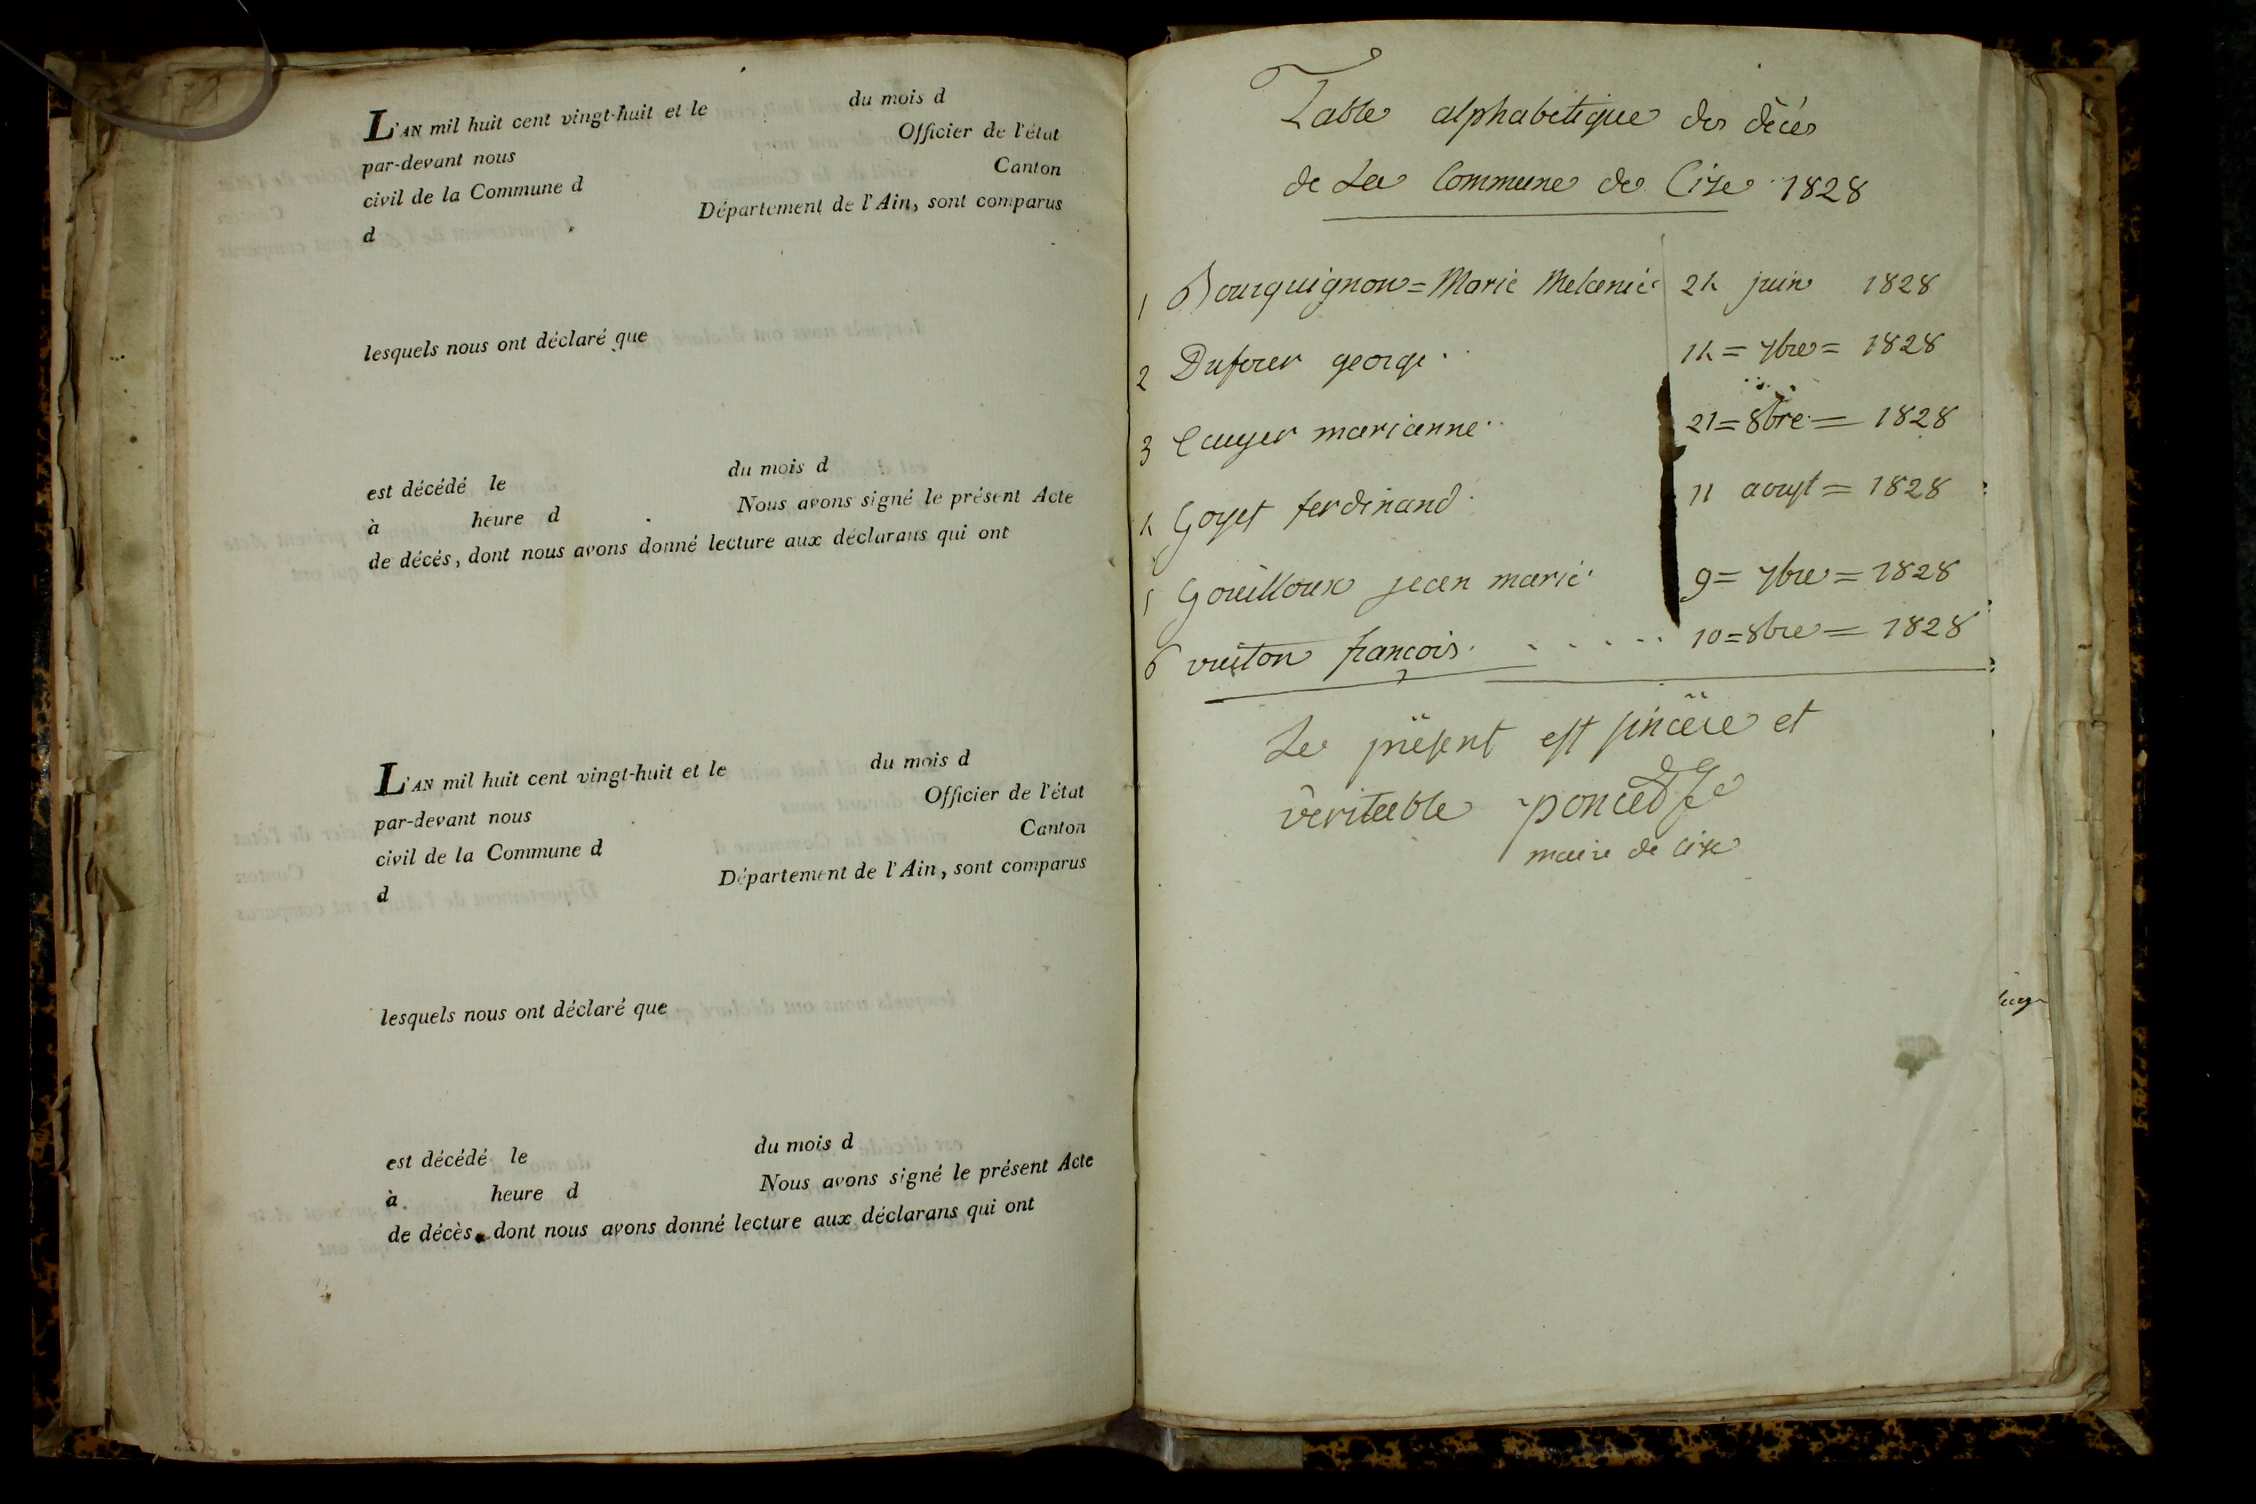 L'AN mil huit cent vingt-huit et le du mois d
par-devant nous Officier de l'état
civil de la Commune d Canton
d Département de l'Ain, sont comparus
lesquels nous ont déclaré que
est décédé le du mois d
à heure d Nous avons signé le présent Acte
de décès, dont nous avons donné lecture aux déclarans qui ont
L'AN mil huit cent vingt-huit et le du mois d
par-devant nous Officier de l'état
civil de la Commune d Canton
d Département de l'Ain, sont comparus
lesquels nous ont déclaré que
est décédé le du mois d
à heure d Nous avons signé le présent Acte
de décès, dont nous avons donné lecture aux déclarans qui ont
Table alphabetique des décés
de La Commune de Cize 1828
1 Bourguignon = Marie Melanie 24 juin 1828
2 george 14 = 7bre = 1828
3 marianne 21 = 8bre = 1828
4 Goyet ferdinand 11 aoust = 1828
5 Gouilloux jean marie 9 = 7bre = 1828
6 vuiton françois 10 = 8bre = 1828
Le présent est sincère et
veritable poncet
maire de Cize